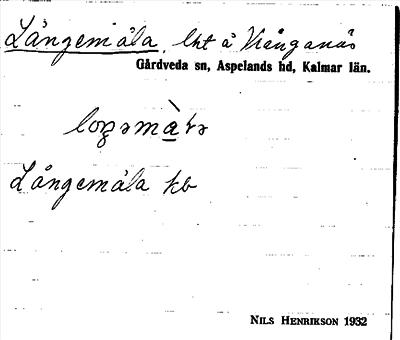 Långemåla, lht å Kränganäs
Gårdveda sn, Aspelands hd, Kalmar län.
Långemåla kb
NILS HENRIKSON 1932